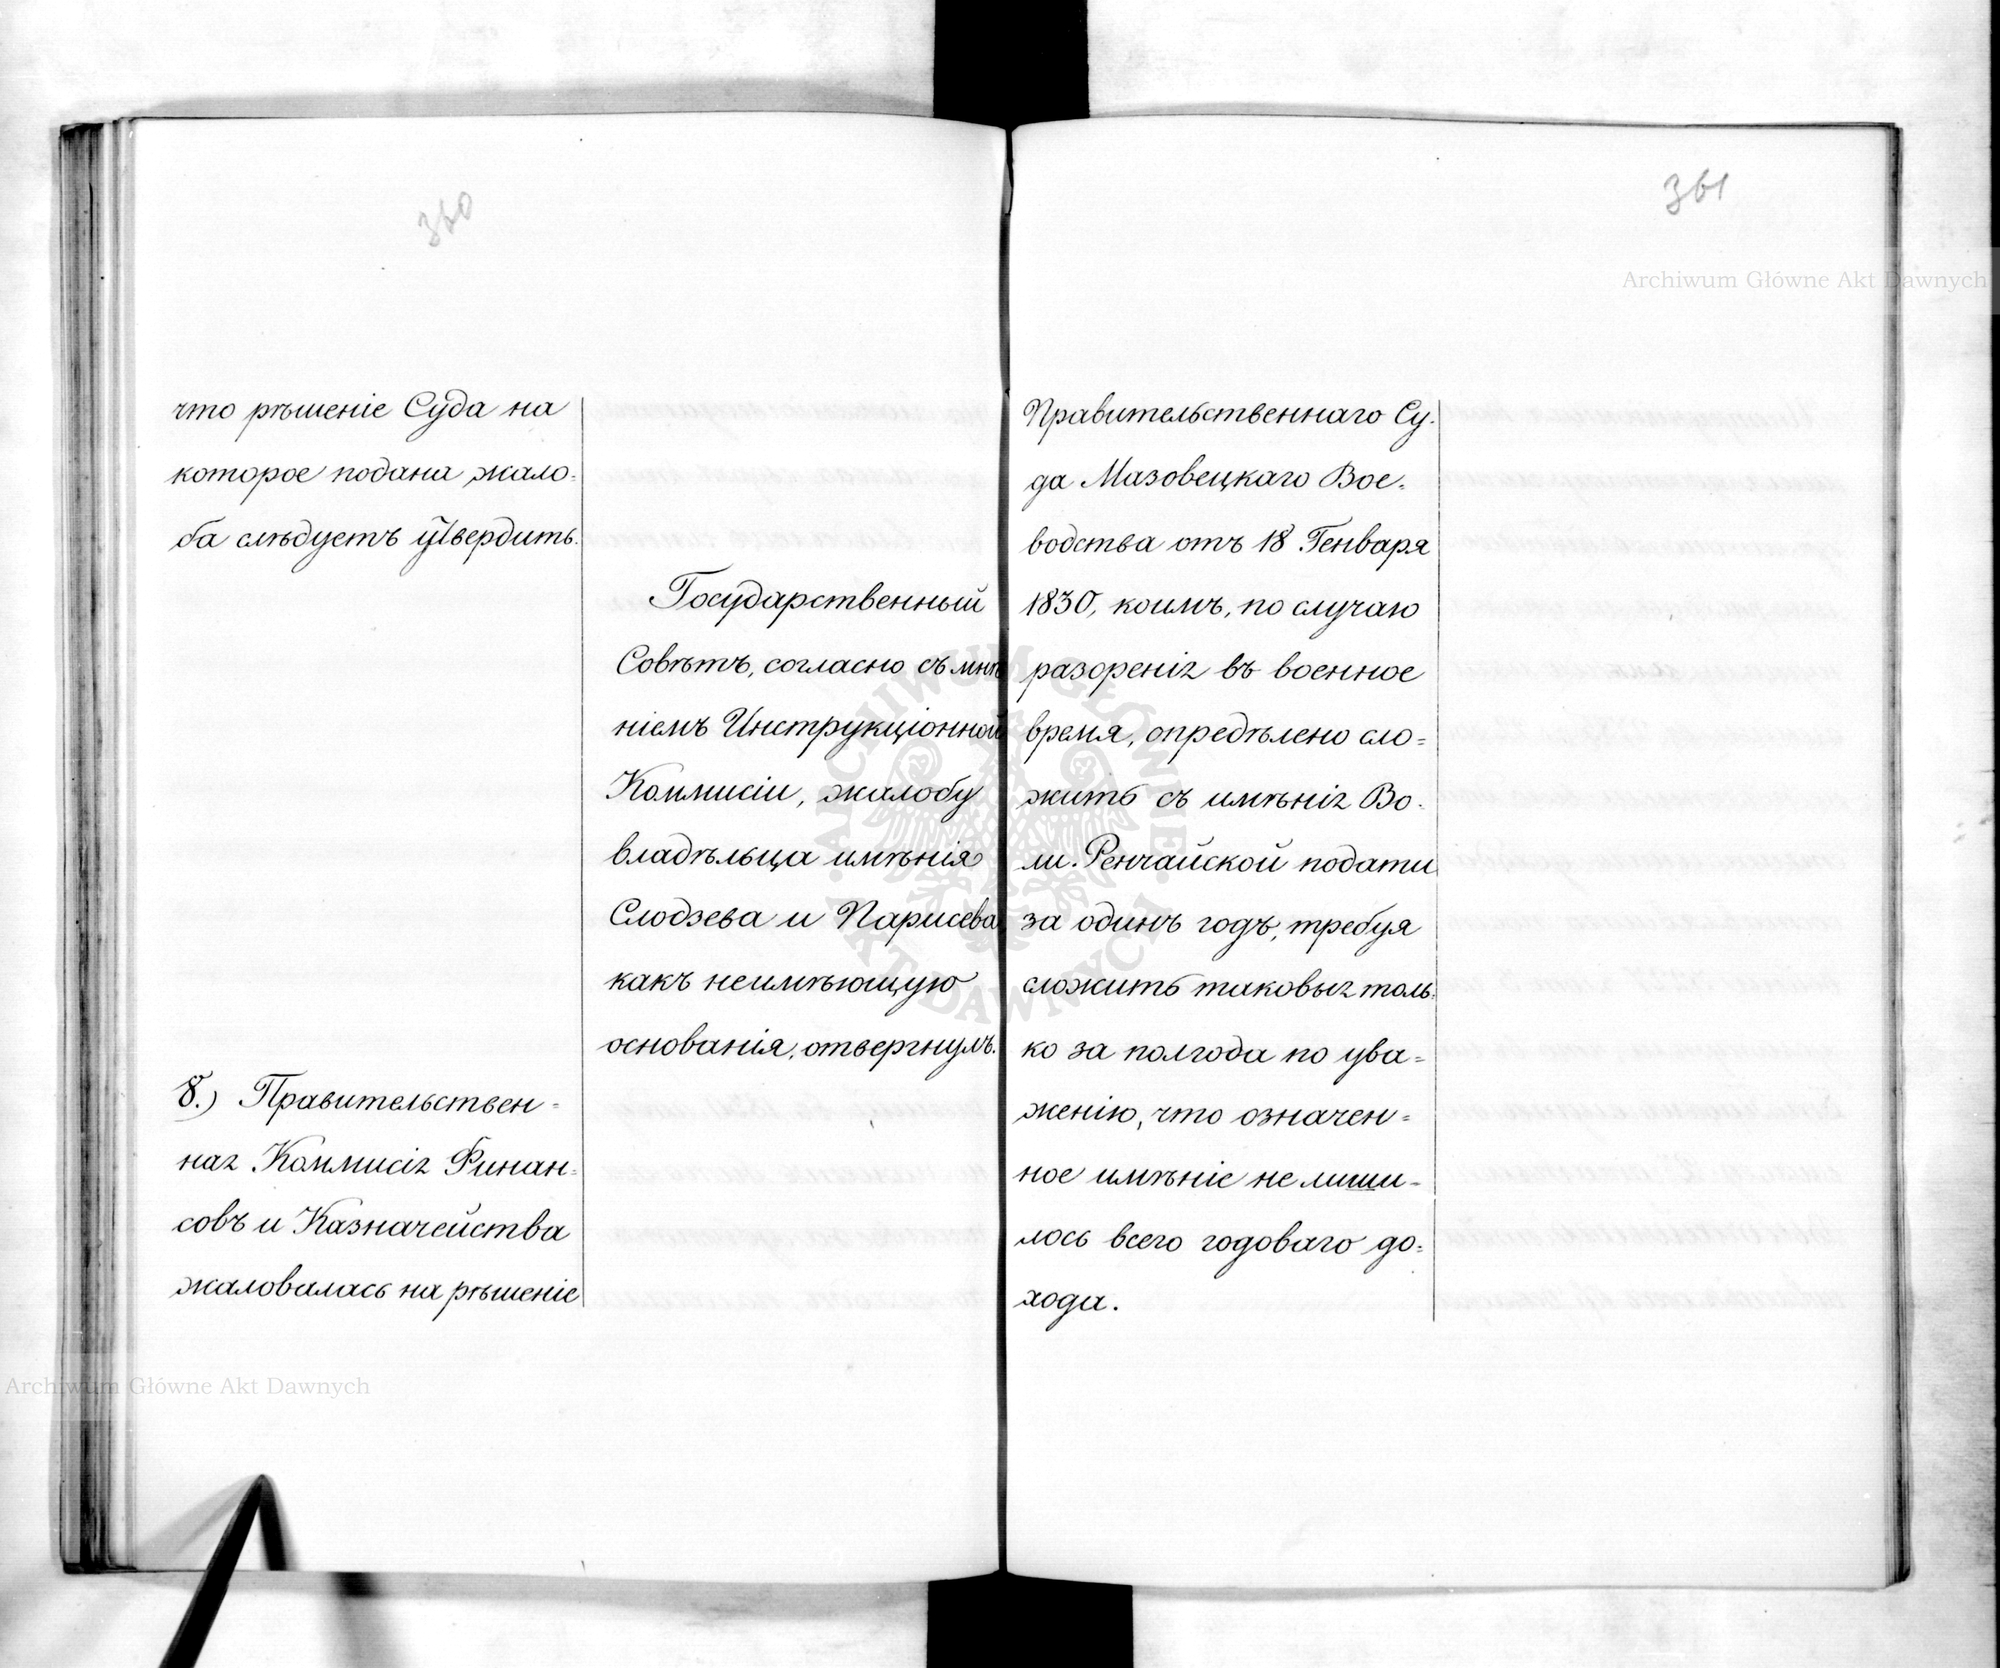 360
что рѣшеніе Суда на
которое подана жало=
ба слѣдуетъ утвердить.
Государственный
Совѣтъ, согласно съ мнѣ
ніемъ Инструкціонной
Коммисіи, жалобу
владѣльца имѣнія
Слодзева и Парисева
какъ неимѣющую
основанія, отвергнулъ.
8.) Правительствен=
ная Коммисія Финан=
совъ и Казначейства
жаловалась на рѣшеніе
361
Правительственнаго Су=
да Мазовецкаго Вое=
водства отъ 18 Генваря
1830, коимъ, по случаю
разоренія въ военное
время, опредѣлено сло=
жить съ имѣнія Во=
ли-Ренчайской подати
за одинъ годъ, требуя
сложить таковыя толь=
ко за полгода по ува=
женію, что означен=
ное имѣніе не лиши=
лось всего годоваго до=
хода.
Archiwum Główne Akt Dawnych
Archiwum Główne Akt Dawnych
ARCHIWUM GŁÓWNE AKT DAWNYCH